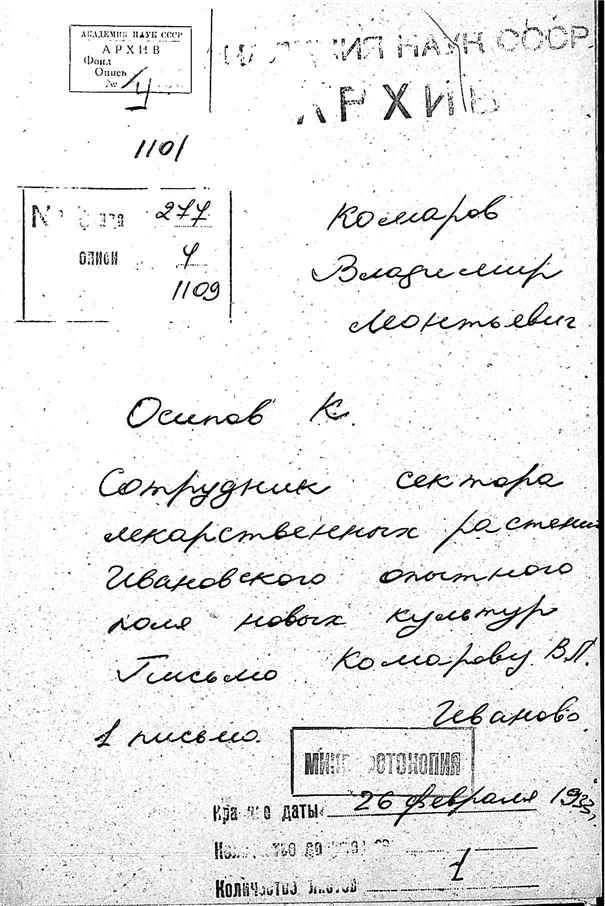 АКАДЕМИЯ НАУК СССР
АРХИВ
Фонд
Опись
№ 4
1101
НАУК СССР
АРХИВ
№ 277
описи 4
1109
Комаров
Владимир
Леонтьевич
Осипов К.
Сотрудник сектора
лекарственных растений
Ивановского опытного
поля новых культур
Письмо Комарову В.Л.
Иваново
1 письмо.
МИКРОФОТОКОПИЯ
Крайние даты 26 февраля 1933 г.
Количество
Количество листов 1